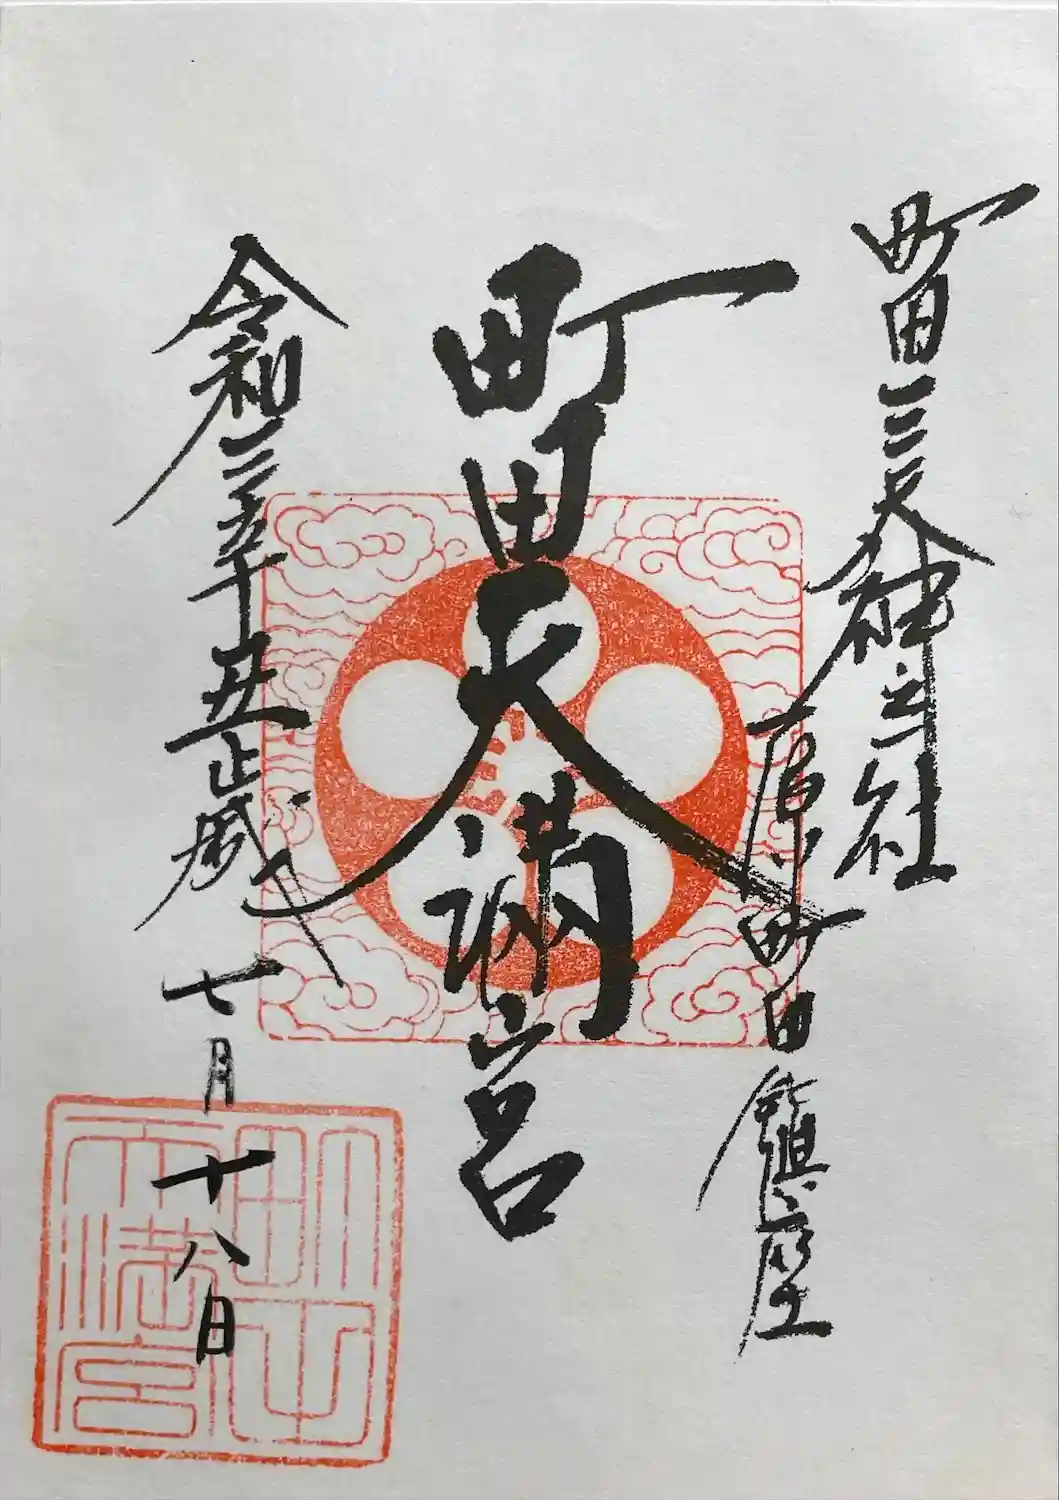 町田三天神之社
原町田鎮座
町田天満宮
令和三年丑歳
七月十八日
町田天満宮